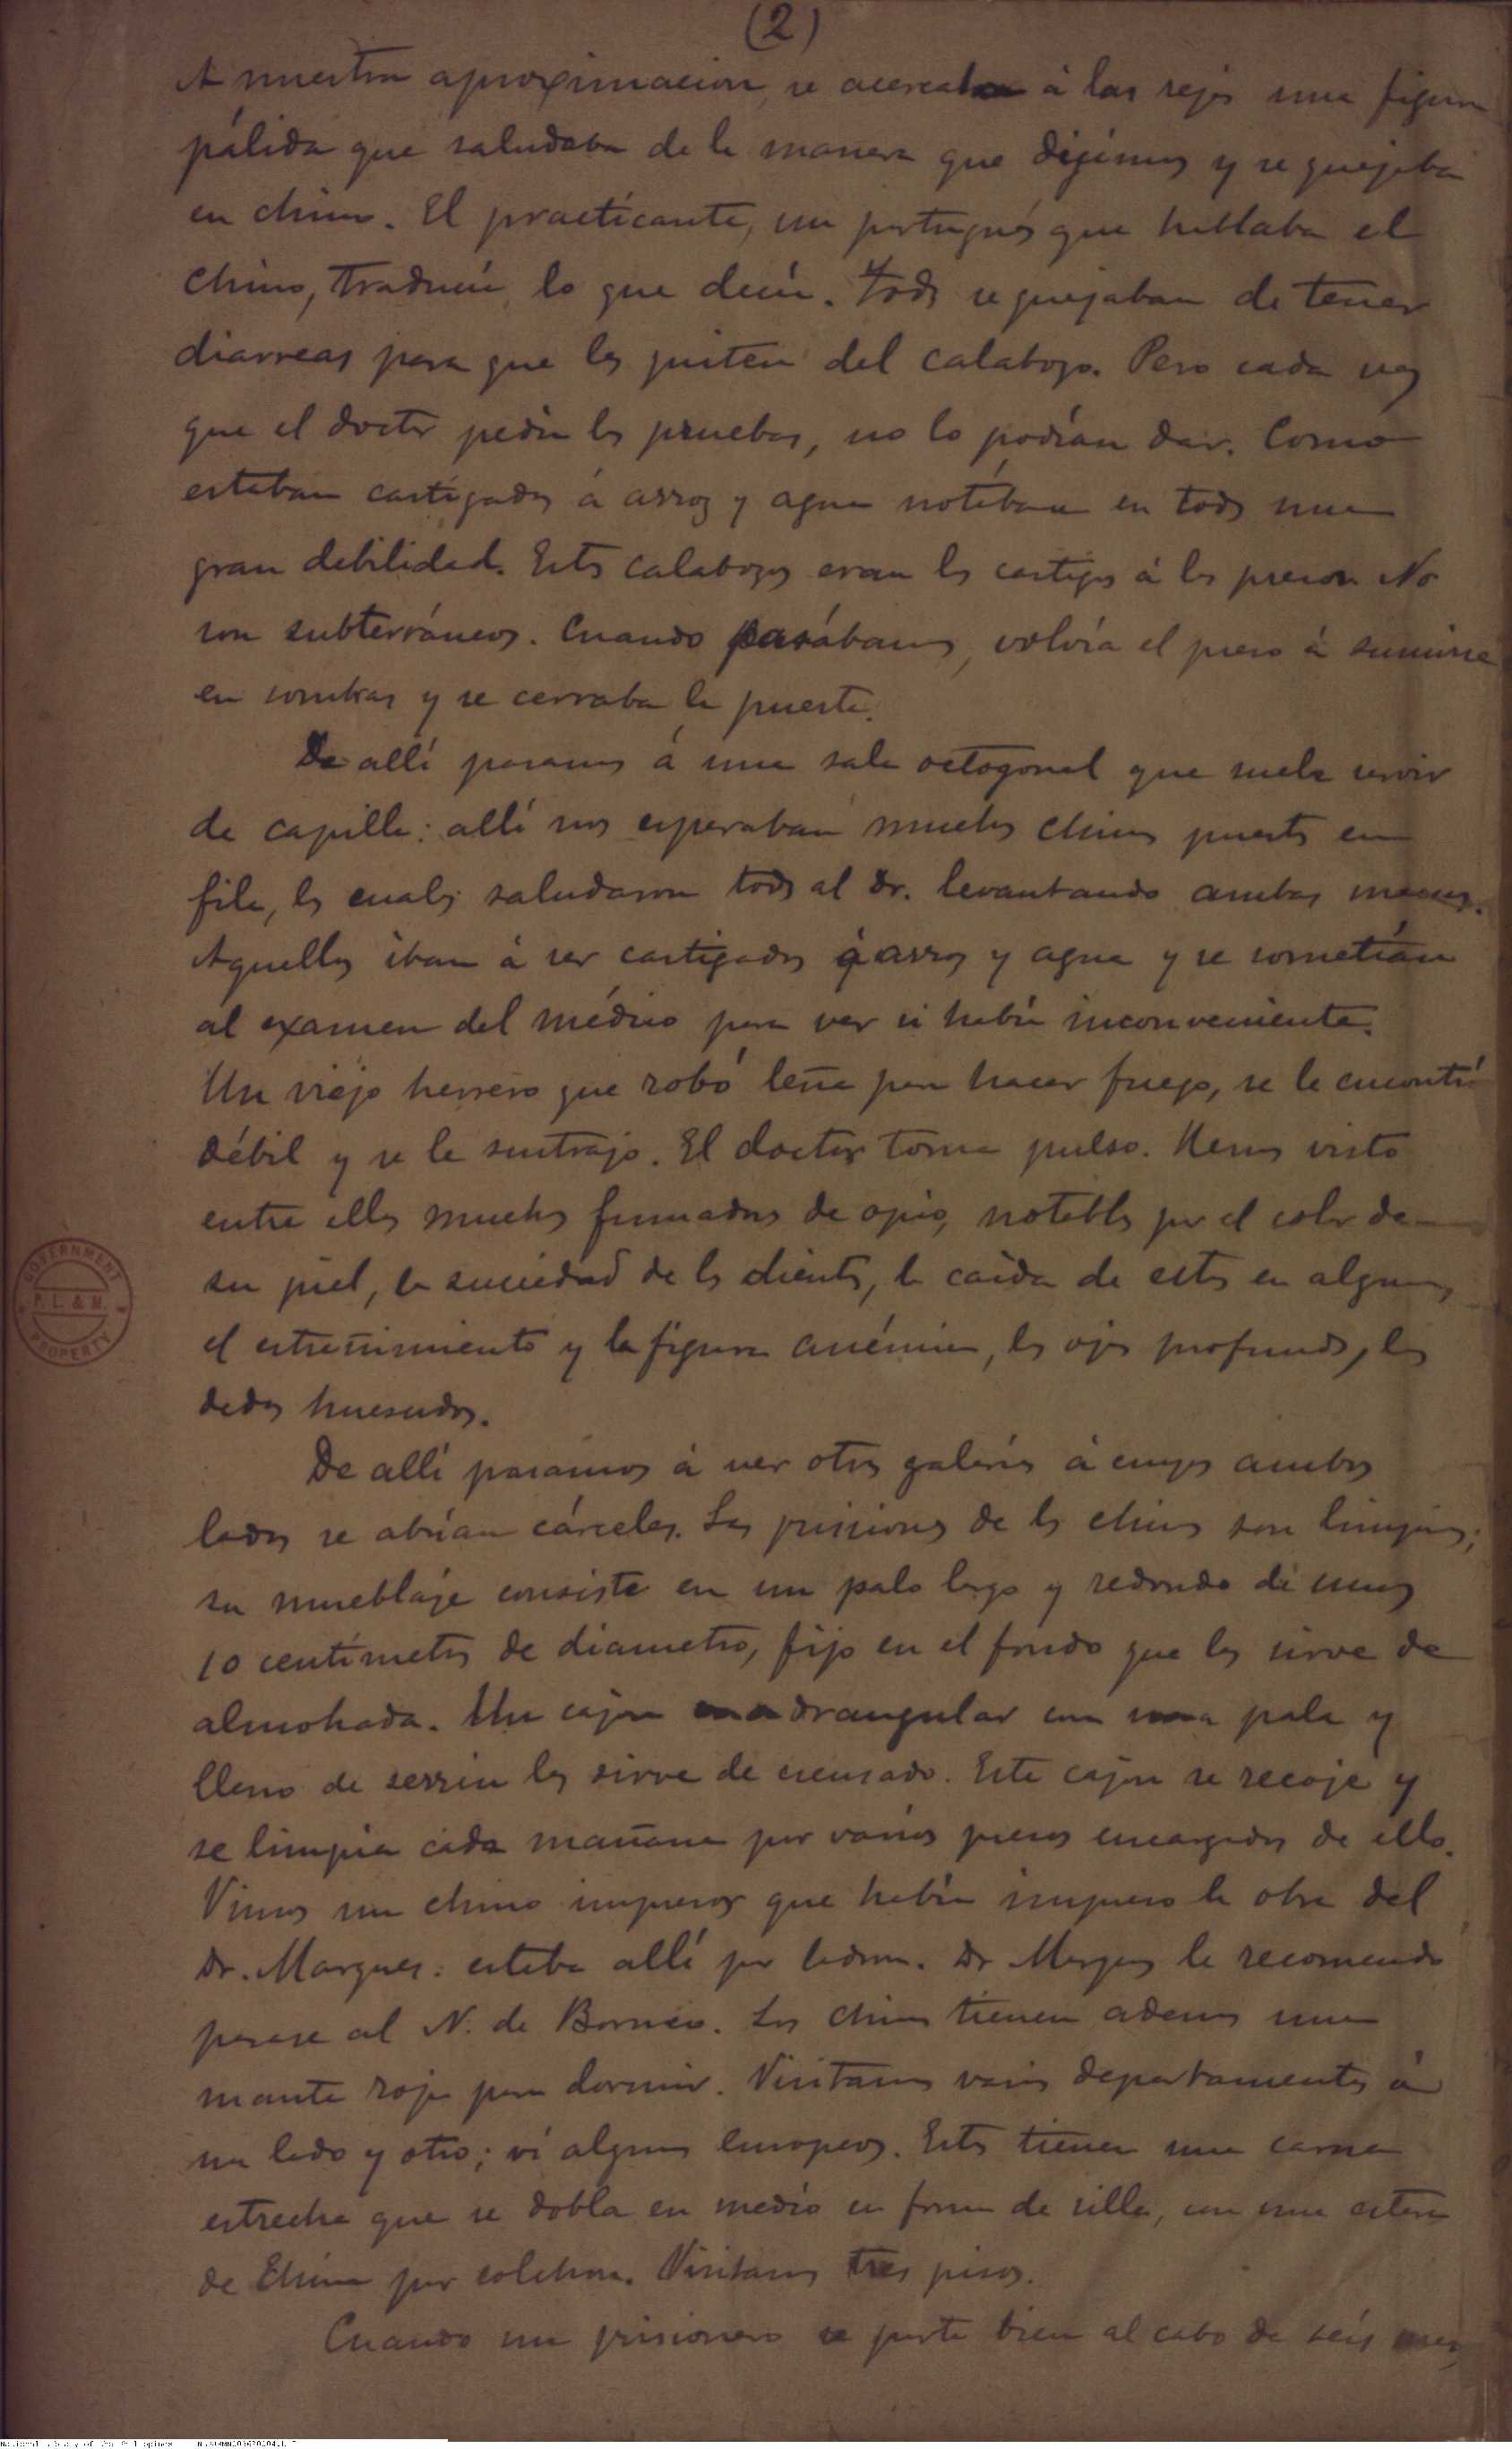 (2)
A nuestra aproximacion, se acercaba á las rejas una figura
pálida que saludaba de la manera que digimos y se quejaba
en chino. El practicante, un portugués que hablaba el
chino, traducía lo que decía. Todos se quejaban de tener
diarreas para que los quiten del calabozo. Pero cada vez
que el doctor pedía las pruebas, no lo podían dar. Como
estaban castigados á arroz y agua notábase en todos una
gran debilidad. Estos calabozos eran los castigos á los presos. No
son subterráneos. Cuando pasábamos, volvía el preso á sumirse
en sombras y se cerraba la puerta.
De allí pasamos á una sala octogonal que suele servir
de capilla: allí nos esperaban muchos chinos puestos en
fila, los cuales saludaron todos al Dr. levantando ambas manos.
Aquellos iban á ser castigados á arroz y agua y se sometían
al examen del médico para ver si había inconveniente.
Un viejo herrero que robó leña para hacer fuego, se le encontró
débil y se le sustrajo. El doctor toma pulso. Hemos visto
entre ellos muchos fumadores de opio, notables por el color de
su piel, la suciedad de los dientes, la caida de estos en algunos,
el estreñimiento y la figura anémica, los ojos profundos, los
dedos huesudos.
De allí pasamos á ver otras galerías á cuyos ambos
lados se abrían cárceles. Las prisiones de los chinos son limpias;
su mueblaje consiste en un palo largo y redondo de unos
10 centímetros de diametro, fijo en el fondo que les sirve de
almohada. Un cajon cuadrangular con una pala y
lleno de serrin les sirve de escusado. Este cajon se recoje y
se limpia cada mañana por varios presos encargados de ello.
Vimos un chino impresor que había impreso la obra del
Dr. Marques: estaba allí por ladron. Dr Marques le recomendó
pasase al N. de Borneo. Los chinos tienen ademas una
manta roja para dormir. Visitamos varios departamentos á
un lado y otro; ví algunos Europeos. Estos tienen una cama
estrecha que se dobla en medio en forma de silla, con una estera
de China por colchon. Visitamos tres pisos.
Cuando un prisionero se porta bien al cabo de seis meses
GOVERNMENT
P. L. & M.
PROPERTY
National Library of the Philippines